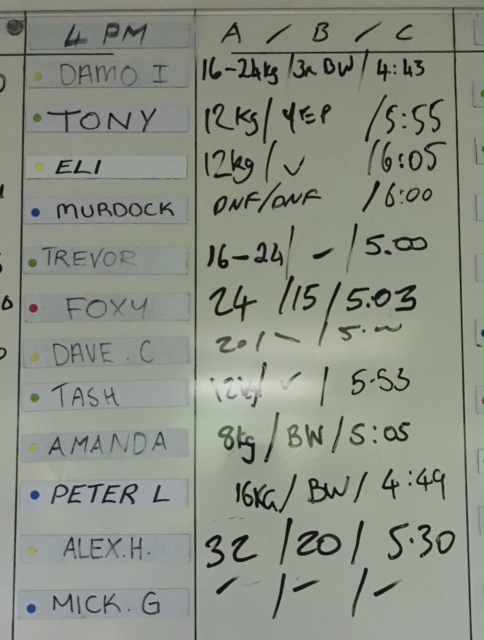 4 PM A / B / C
DAMO I 16-24kg / 3x BW / 4:43
TONY 12kg / YEP / 5:55
ELI 12kg / ✓ / 6:05
MURDOCK DNF/DNF / 6:00
TREVOR 16-24 / - / 5.00
FOXY 24 / 15 / 5.03
DAVE. C 20 / - /
TASH 12kg / ✓ / 5.53
AMANDA 8kg / BW / 5:05
PETER L 16KG / BW / 4:49
ALEX.H. 32 / 20 / 5.30
MICK. G - / - / -